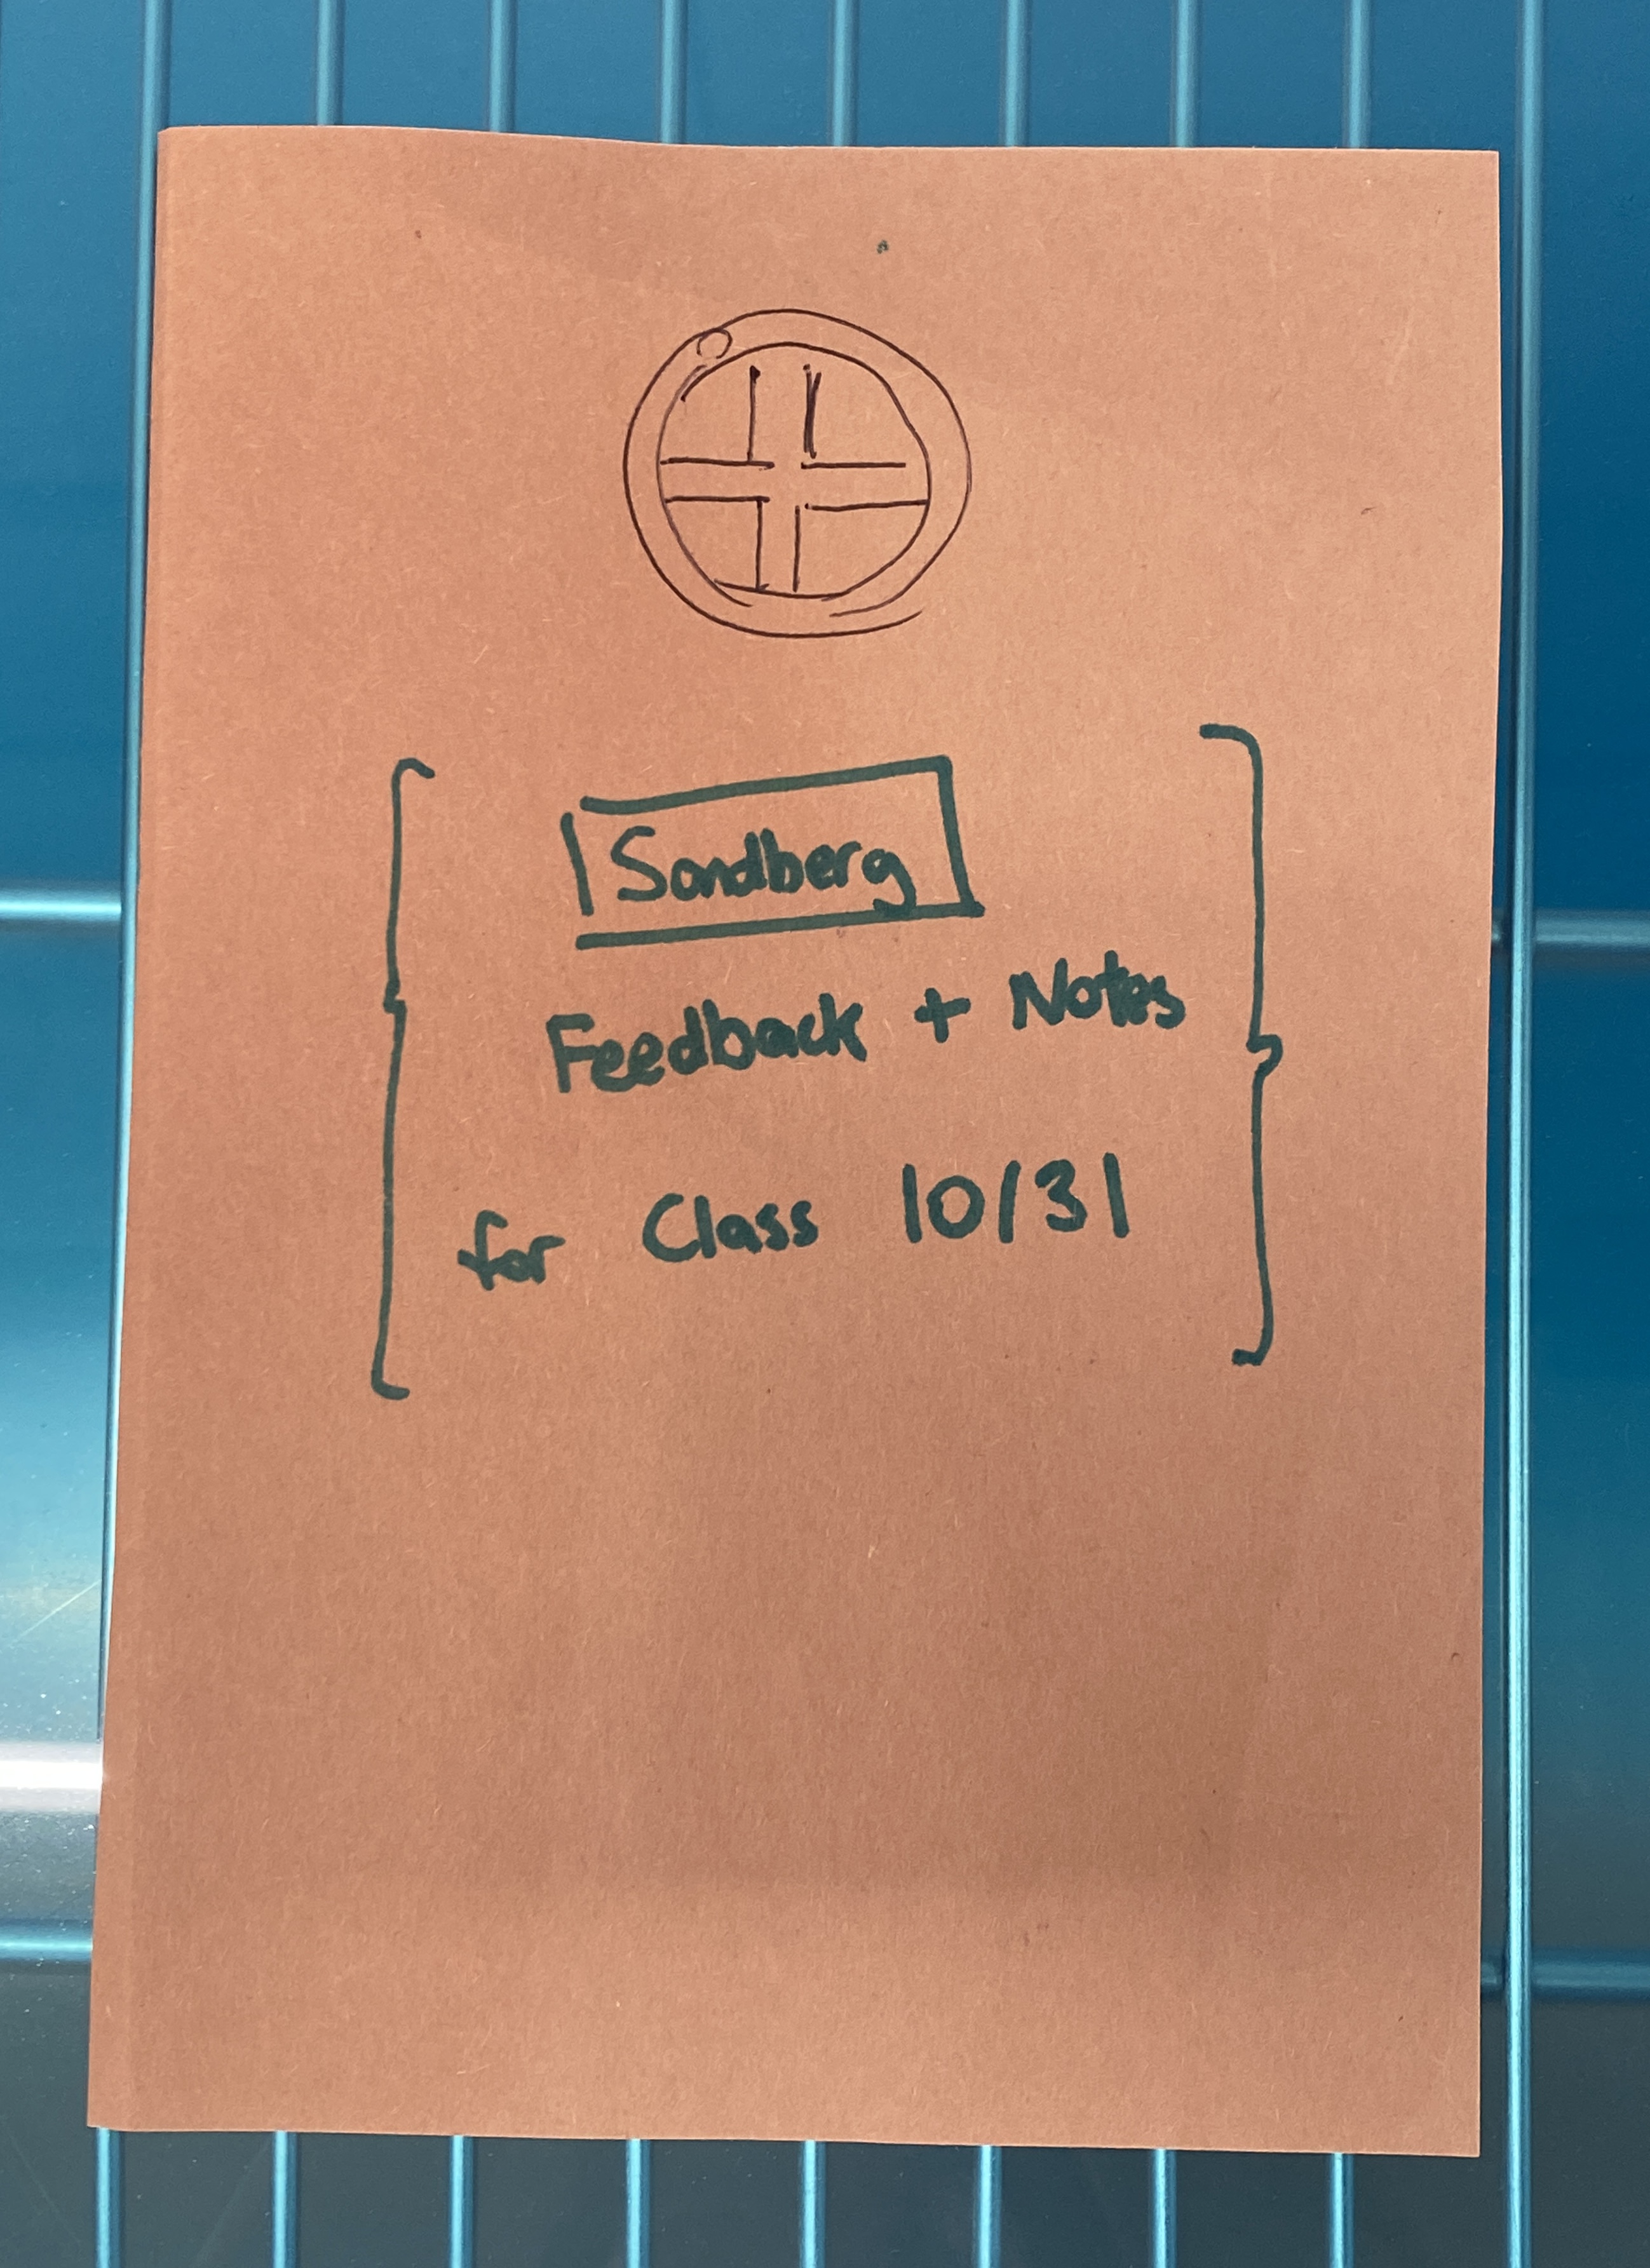 Sandberg
Feedback + Notes
for Class 10/31